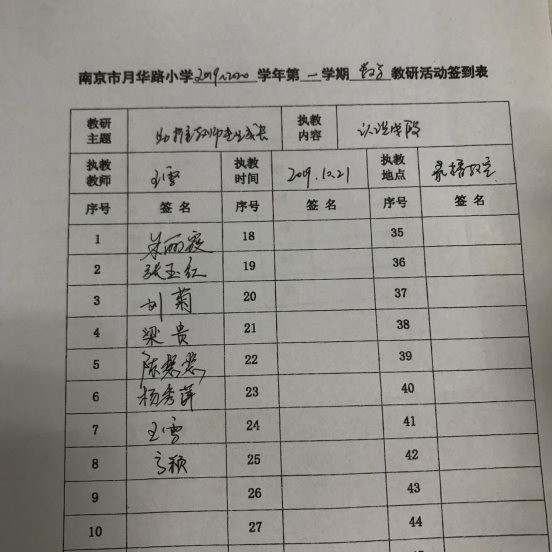 南京市月华路小学2019~2020学年第一学期数学教研活动签到表
教研主题 助推教师专业成长 执教内容 认识学段
执教教师 王雪 执教时间 2019.12.21 执教地点 录播教室
序号 签名 序号 签名 序号 签名
1 朱丽霞 18 35
2 张玉红 19 36
3 刘菊 20 37
4 梁贵 21 38
5 陈慧慧 22 39
6 杨秀萍 23 40
7 王雪 24 41
8 方颖 25 42
9 26 43
10 27 44